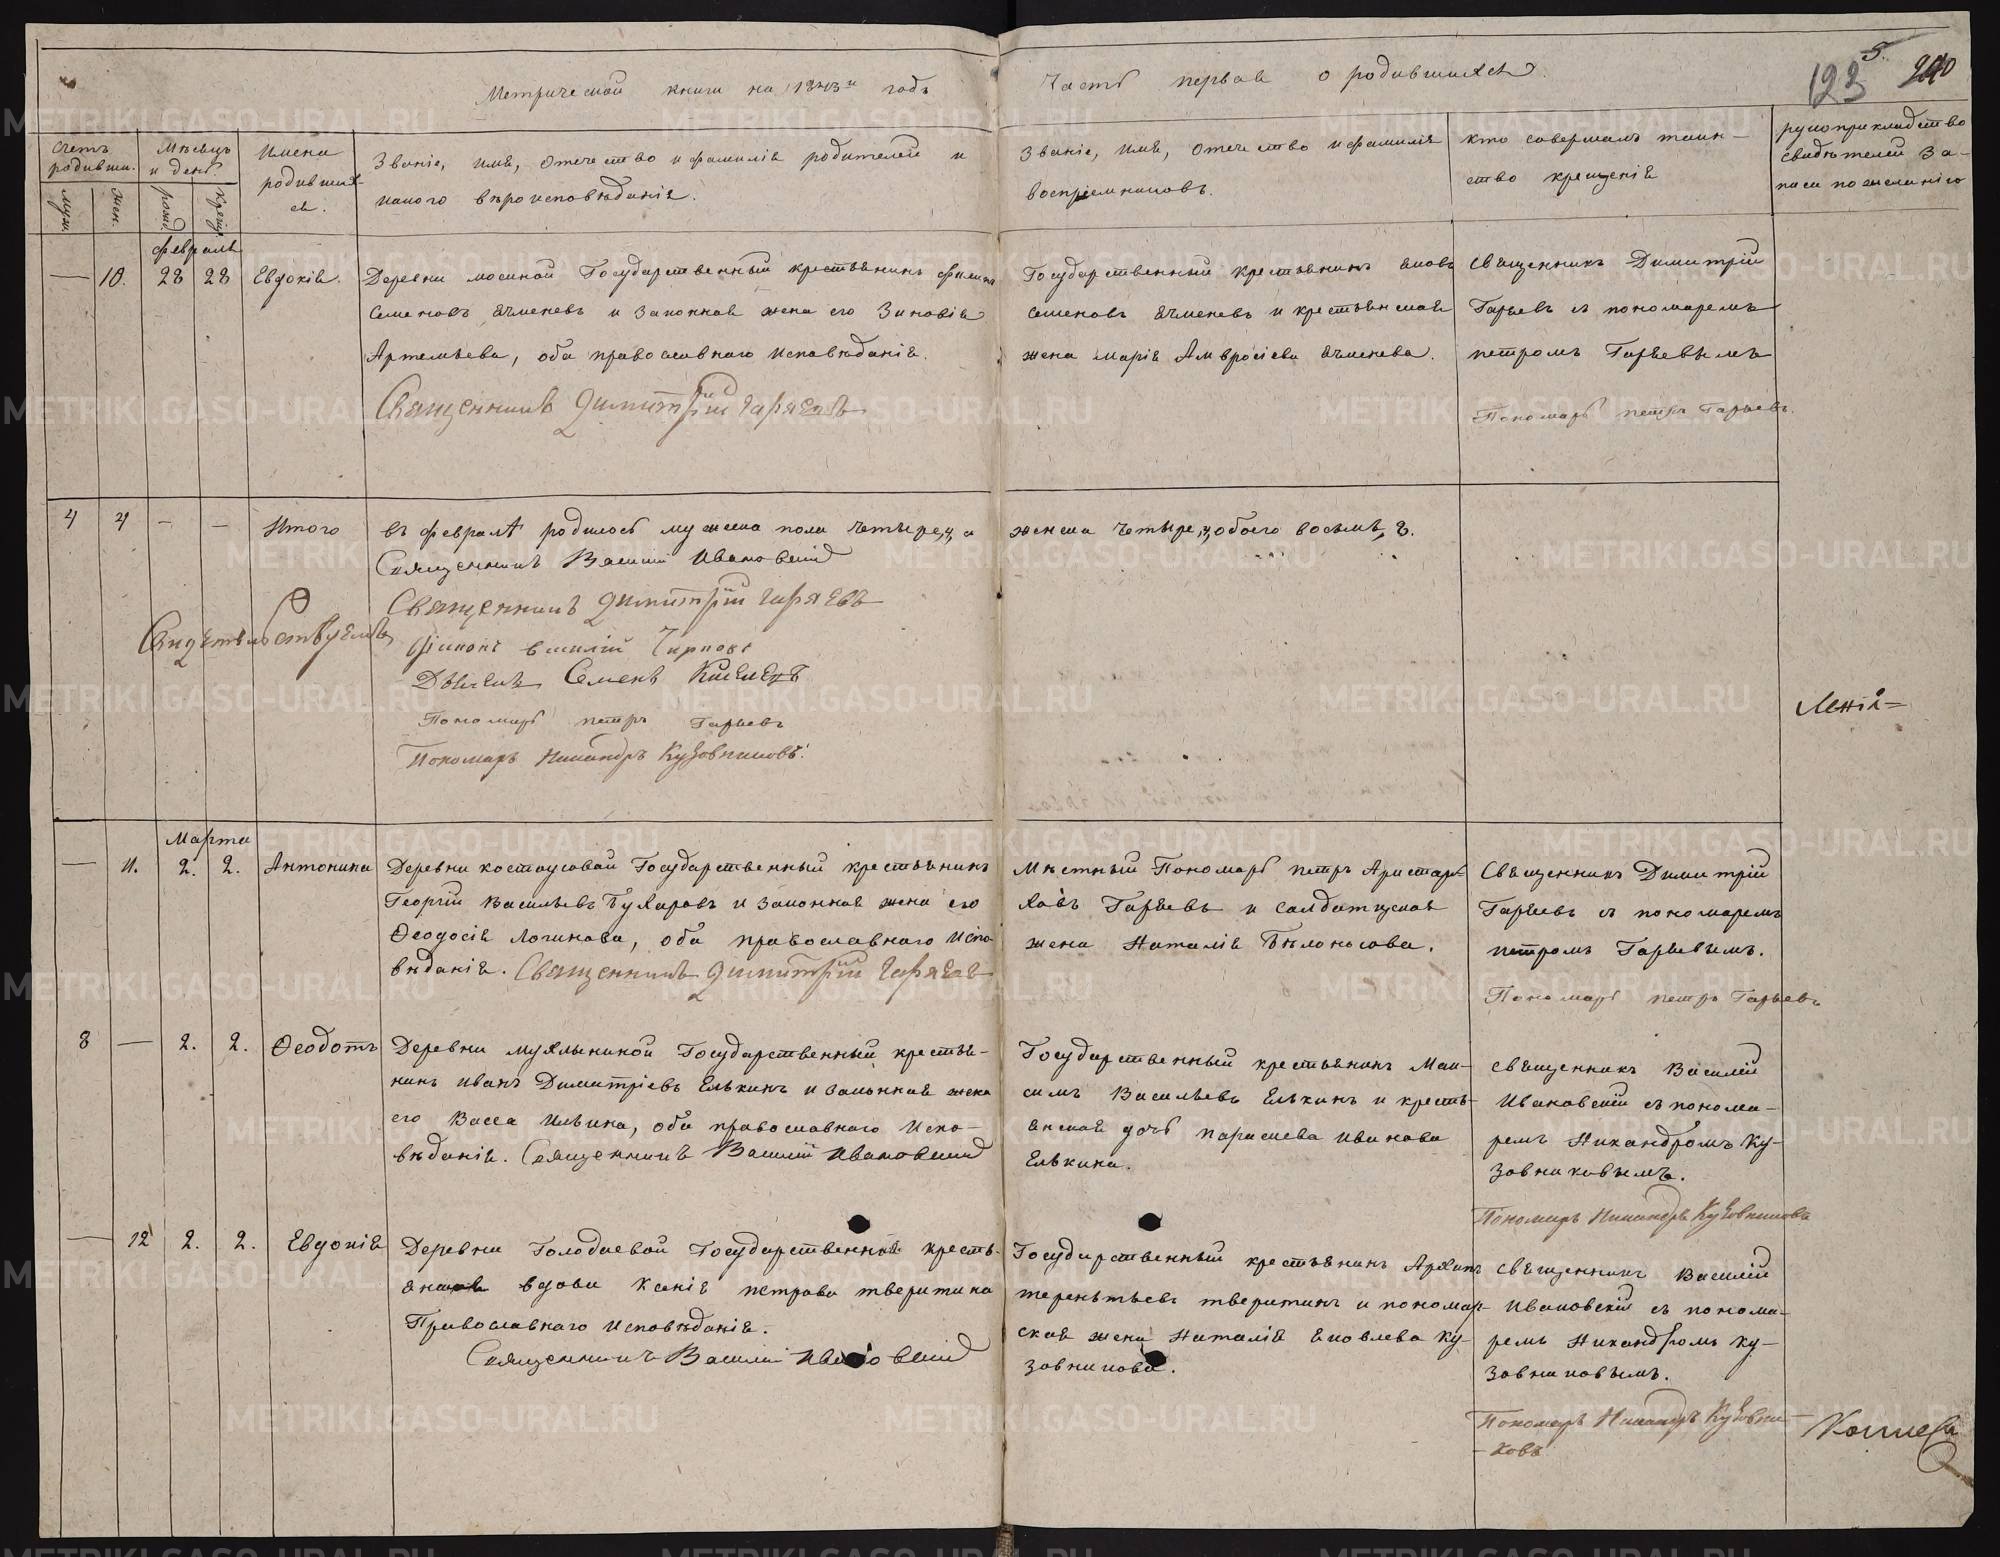 Метрической книги на 1843й годъ
Часть первая о родившихся.
5.
123
240
Счетъ родивши.
Мѣсяцъ и день
Имена родивших-ся.
Званіе, имя, отечество и фамилія родителей и
какого вѣроисповѣданія.
Званіе, имя, отечество и фамилія
воспріемниковъ.
кто совершалъ таин-
ство крещенія
рукоприкладство
свидѣтелей за-
писи по желанію
мужи.
жен.
рожд.
крещ.
февраль
— 10. 28 28 Евдокія.
Деревни мосиной Государственный крестьянинъ филипъ
Семеновъ Ячменевъ и законная жена его Зиновія
Артемьева, оба православнаго исповѣданія.
Священникъ Димитрій Гаряевъ
Государственный крестьянинъ яковъ
Семеновъ Ячменевъ и крестьянская
жена Марія Амвросіева Ячменева.
священникъ Димитрій
Гаряевъ съ пономаремъ
петромъ Гаряевымъ
Пономарь петръ Гаряевъ.
4 4 — — Итого
въ февралѣ родилось мужеска пола четыре, 4, а
женска четыре, 4, обоего восемь, 8.
Священникъ Василій Ивановскій
Священникъ Димитрій Гаряевъ
Свидѣтельствуемъ
Діаконъ василій Чирковъ
Дьячекъ Семенъ Киселевъ
Пономарь петръ Гаряевъ
Пономарь Никандръ Кузовниковъ.
Марта
— 11. 2. 2. Антонина
Деревни костоусовой Государственный крестьянинъ
Георгій Васильевъ Бухаровъ и законная жена его
Ѳеодосія Логинова, оба православнаго испо-
вѣданія. Священникъ Димитрій Гаряевъ
Мѣстный Пономарь петръ Аристар-
ховъ Гаряевъ и солдатская
жена Наталія Бѣлоносова.
Священникъ Димитрій
Гаряевъ съ пономаремъ
петромъ Гаряевымъ.
Пономарь петръ Гаряевъ
8 — 2. 2. Ѳеодотъ
Деревни мухлыниной Государственный крестья-
нинъ иванъ Димитріевъ Елькинъ и законная жена
его Васса Ильина, оба православнаго испо-
вѣданія. Священникъ Василій Ивановскій
Государственный крестьянинъ Мак-
симъ Васильевъ Елькинъ и кресть-
янская дочь параскева иванова
Елькина.
священникъ Василій
Ивановскій съ понома-
ремъ Никандромъ Ку-
зовниковымъ.
Пономарь Никандръ Кузовниковъ
— 12 2. 2. Евдокія
Деревни Голодаевой Государственная кресть-
янская вдова Ксенія петрова тверитина
Православнаго исповѣданія.
Священникъ Василій Ивановскій
Государственный крестьянинъ Архипъ
терентьевъ тверитинъ и пономар-
ская жена Наталія яковлева Ку-
зовникова.
священникъ Василій
Ивановскій съ понома-
ремъ Никандромъ Ку-
зовниковымъ.
Пономарь Никандръ Кузовни-
-ковъ